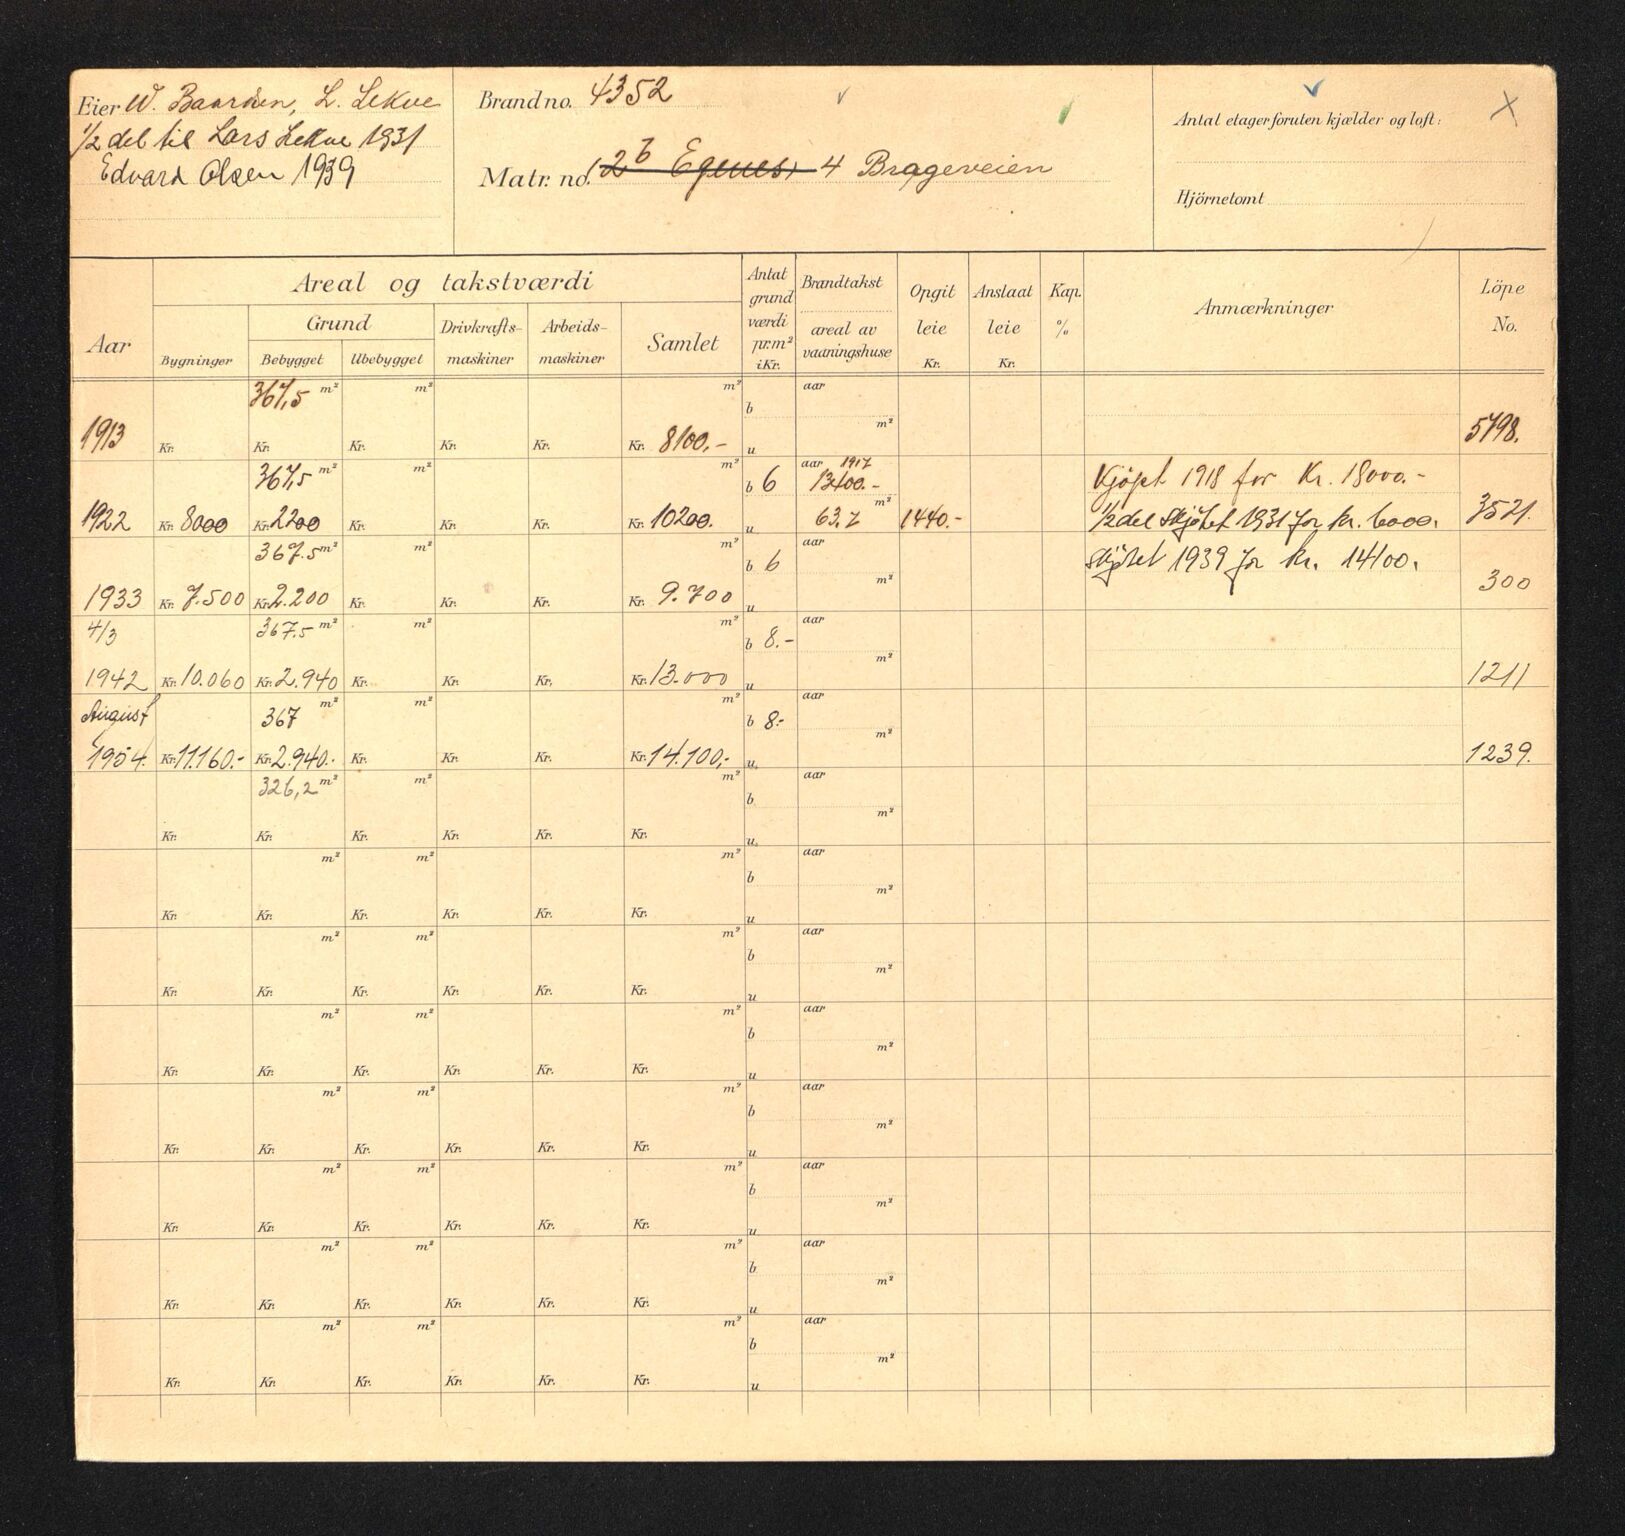 Eier W. Baarsen, L. Lekve
1/2 del til Lars Lekve 1931
Edvard Olsen 1939
Brand no. 4352
Matr. no. (2b Egenes) 4 Brageveien
Antal etager foruten kjælder og loft:
Hjörnetomt
Aar
Areal og takstværdi
Bygninger
Grund
Bebygget
Ubebygget
Drivkrafts-maskiner
Arbeids-maskiner
Samlet
Antat grundværdi pr. m² i Kr.
Brandtakst
areal av vaaningshuse
Opgit leie Kr.
Anslaat leie Kr.
Kap. %
Anmærkninger
Löpe No.
367,5 m² m² m² b aar
1913 Kr. Kr. Kr. Kr. Kr. Kr. 8100.- u m² 5798.
367,5 m² m² m² b 6 aar 1917 13400.- Kjöpt 1918 for Kr. 18000.-
1922 Kr. 8000 Kr. 2200 Kr. Kr. Kr. Kr. 10200. u m² 63,7 1440.- 1/2 del skjötet 1931 for kr. 6000. 3521.
367.5 m² m² m² b 6 aar skjötet 1939 for kr. 14100.
1933 Kr. 7.500 Kr. 2.200 Kr. Kr. Kr. Kr. 9.700 u m² 300
4/3 367.5 m² m² m² b 8.- aar
1942 Kr. 10.060 Kr. 2.940 Kr. Kr. Kr. Kr. 13.000 u m² 1211
August 367 m² m² m² b 8.- aar
1954. Kr. 11.160.- Kr. 2.940.- Kr. Kr. Kr. Kr. 14.100,- u m² 1239.
326,2 m² m² m² b aar
Kr. Kr. Kr. Kr. Kr. Kr. u m²
m² m² m² b aar
Kr. Kr. Kr. Kr. Kr. Kr. u m²
m² m² m² b aar
Kr. Kr. Kr. Kr. Kr. Kr. u m²
m² m² m² b aar
Kr. Kr. Kr. Kr. Kr. Kr. u m²
m² m² m² b aar
Kr. Kr. Kr. Kr. Kr. Kr. u m²
m² m² m² b aar
Kr. Kr. Kr. Kr. Kr. Kr. u m²
m² m² m² b aar
Kr. Kr. Kr. Kr. Kr. Kr. u m²
m² m² m² b aar
Kr. Kr. Kr. Kr. Kr. Kr. u m²